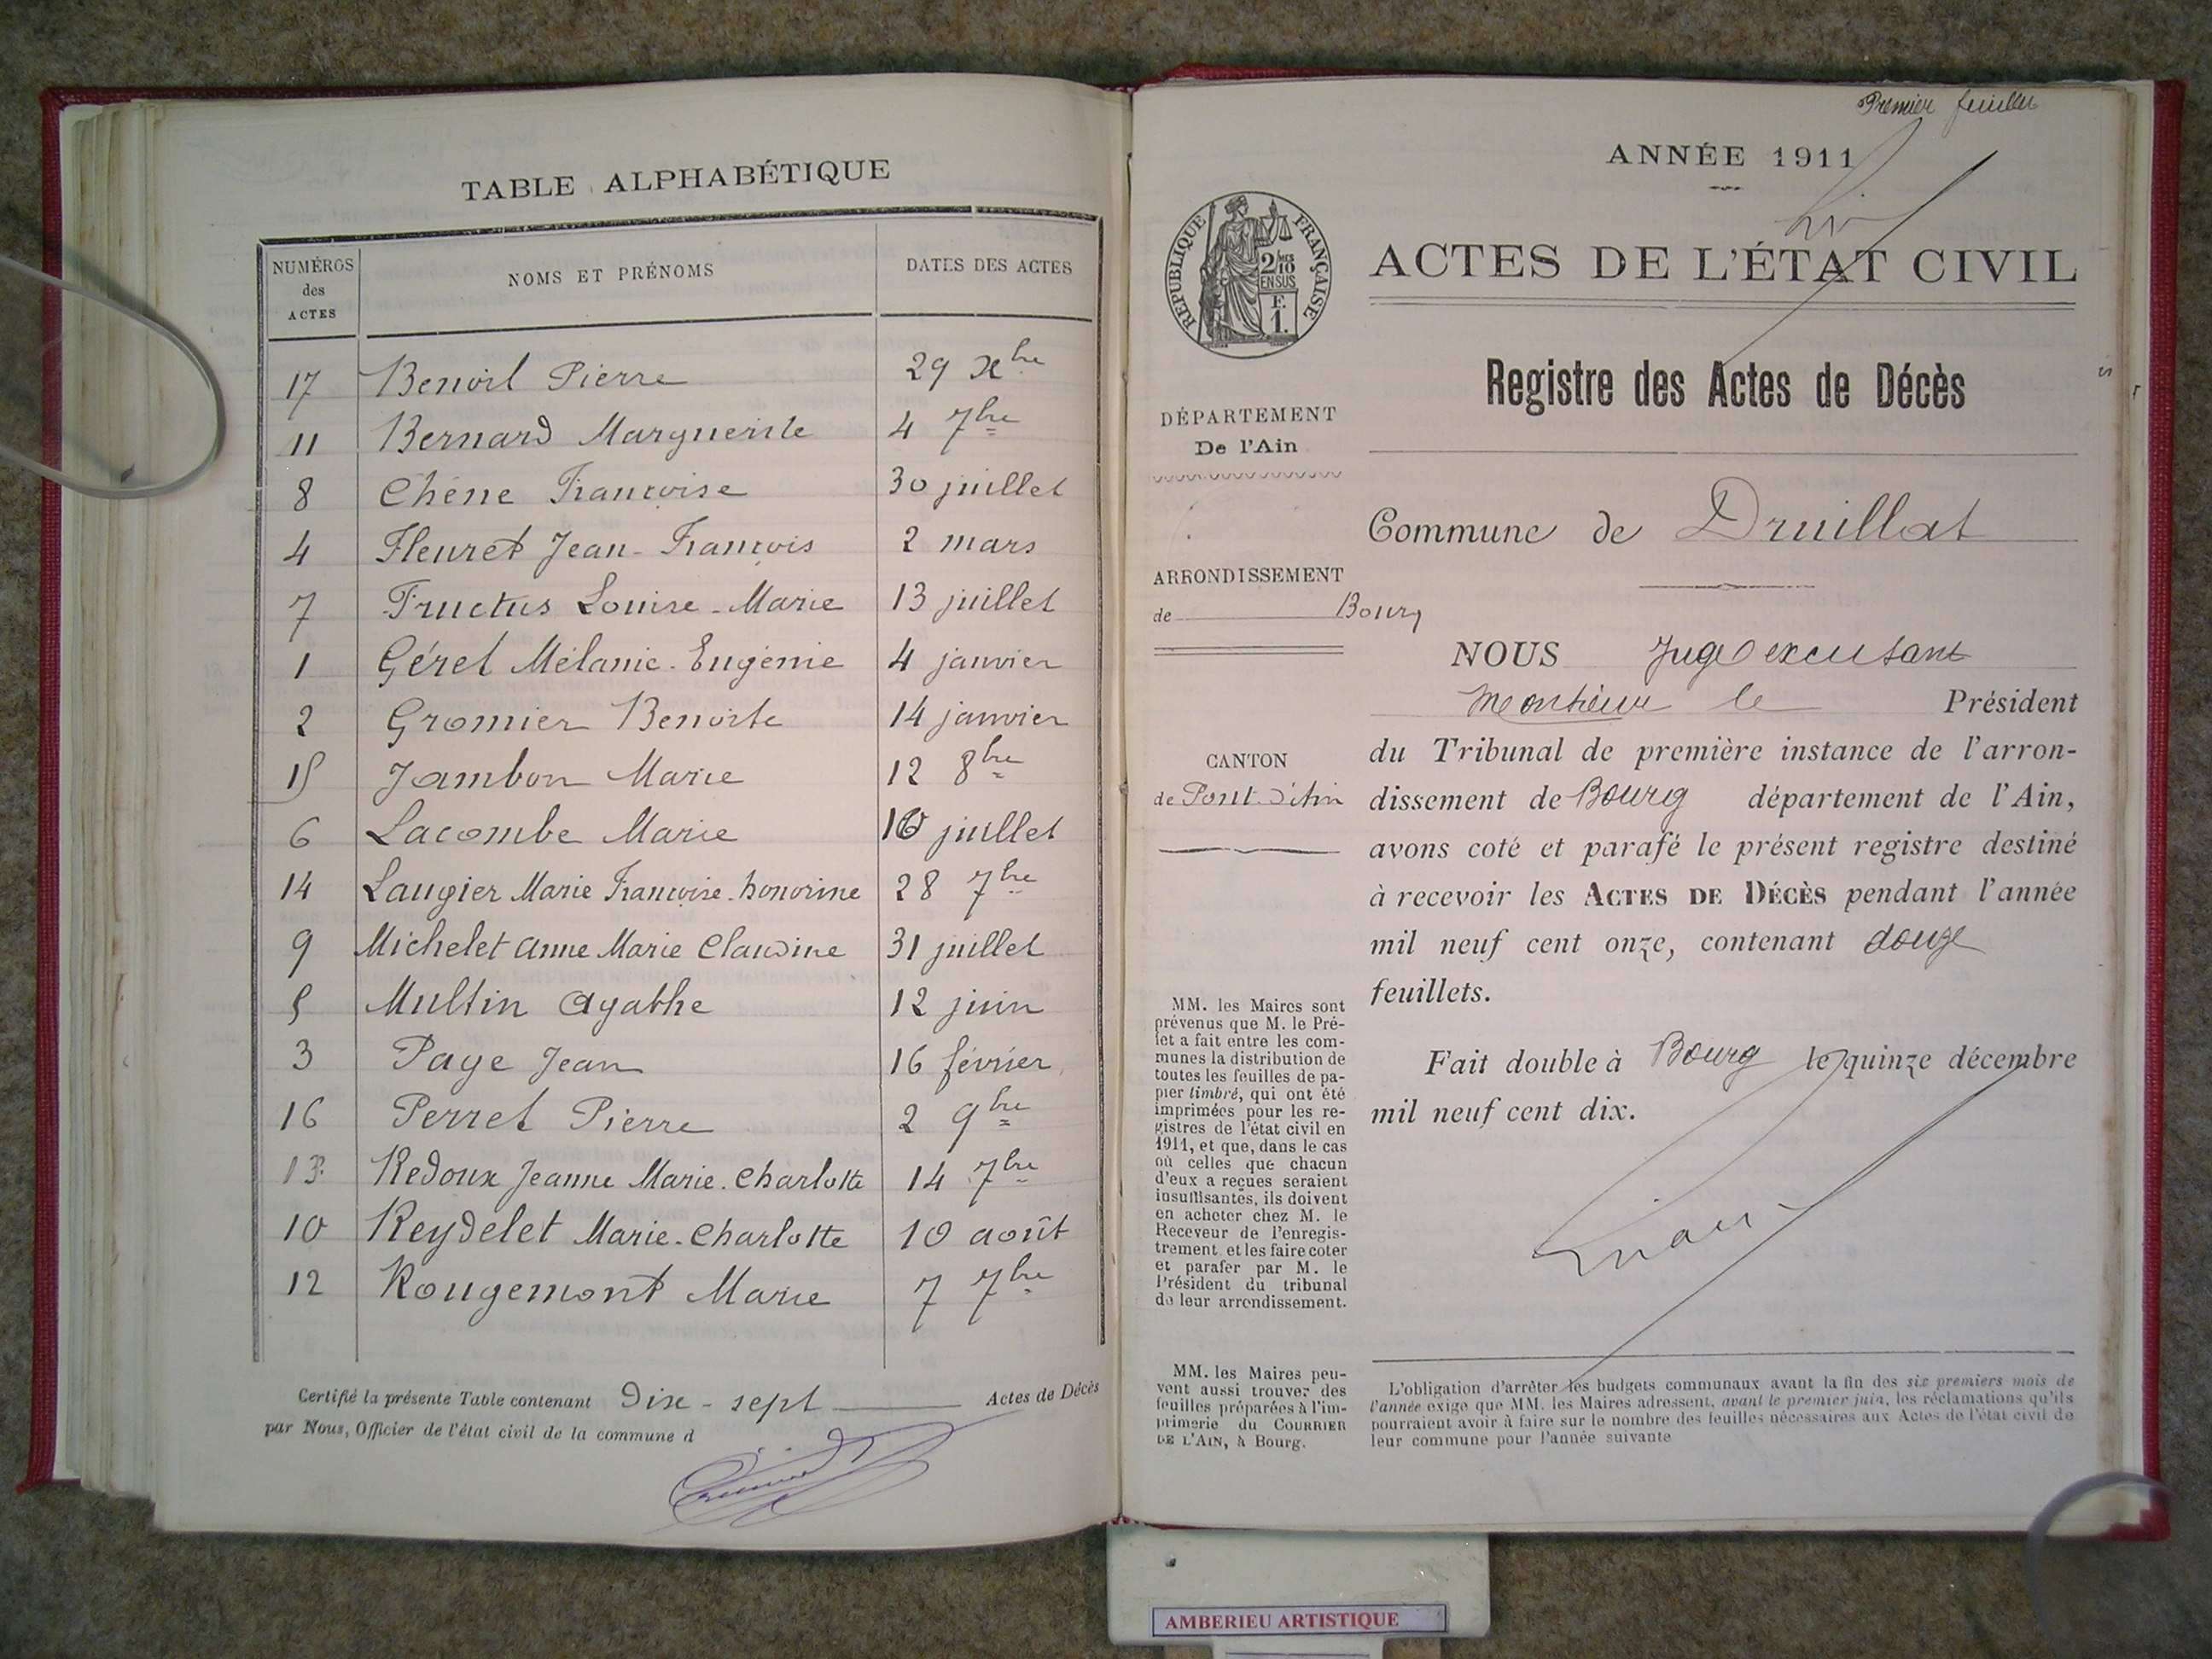 TABLE ALPHABÉTIQUE
NUMÉROS des ACTES NOMS ET PRÉNOMS DATES DES ACTES
17 Benoit Pierre 29 Xbre
11 Bernard Marguerite 4 7bre
8 Chêne Françoise 30 juillet
4 Fleuret Jean-François 2 mars
7 Fructus Louise-Marie 13 juillet
1 Géret Mélanie-Eugénie 4 janvier
2 Gromier Benoite 14 janvier
15 Jambon Marie 12 8bre
6 Lacombe Marie 10 juillet
14 Laugier Marie Françoise-honorine 28 7bre
9 Michelet Anne Marie Claudine 31 juillet
5 Multin Agathe 12 juin
3 Page Jean 16 février
16 Perret Pierre 2 9bre
13 Redoux Jeanne Marie-Charlotte 14 7bre
10 Reydelet Marie-Charlotte 10 août
12 Rougemont Marie 7 7bre
Certifié la présente Table contenant Dix-sept Actes de Décès
par Nous, Officier de l'état civil de la commune d
Premier feuillet
ANNÉE 1911
RÉPUBLIQUE FRANÇAISE
2/10
EN SUS
F.
1.
ACTES DE L'ÉTAT CIVIL
Registre des Actes de Décès
DÉPARTEMENT
De l'Ain
Commune de Druillat
ARRONDISSEMENT
de Bourg
NOUS Juge
Monsieur le Président
du Tribunal de première instance de l'arron-
CANTON
de Pont-d'Ain
dissement de Bourg département de l'Ain,
avons coté et parafé le présent registre destiné
à recevoir les ACTES DE DÉCÈS pendant l'année
mil neuf cent onze, contenant douze
feuillets.
Fait double à Bourg le quinze décembre
mil neuf cent dix.
MM. les Maires sont
prévenus que M. le Pré-
fet a fait entre les com-
munes la distribution de
toutes les feuilles de pa-
pier timbré, qui ont été
imprimées pour les re-
gistres de l'état civil en
1911, et que, dans le cas
où celles que chacun
d'eux a reçues seraient
insuffisantes, ils doivent
en acheter chez M. le
Receveur de l'enregis-
trement et les faire coter
et parafer par M. le
Président du tribunal
de leur arrondissement.
MM. les Maires peu-
vent aussi trouver des
feuilles préparées à l'im-
primerie du COURRIER
DE L'AIN, à Bourg.
L'obligation d'arrêter les budgets communaux avant la fin des six premiers mois de
l'année exige que MM. les Maires adressent, avant le premier juin, les réclamations qu'ils
pourraient avoir à faire sur le nombre des feuilles nécessaires aux Actes de l'état civil de
leur commune pour l'année suivante
AMBERIEU ARTISTIQUE